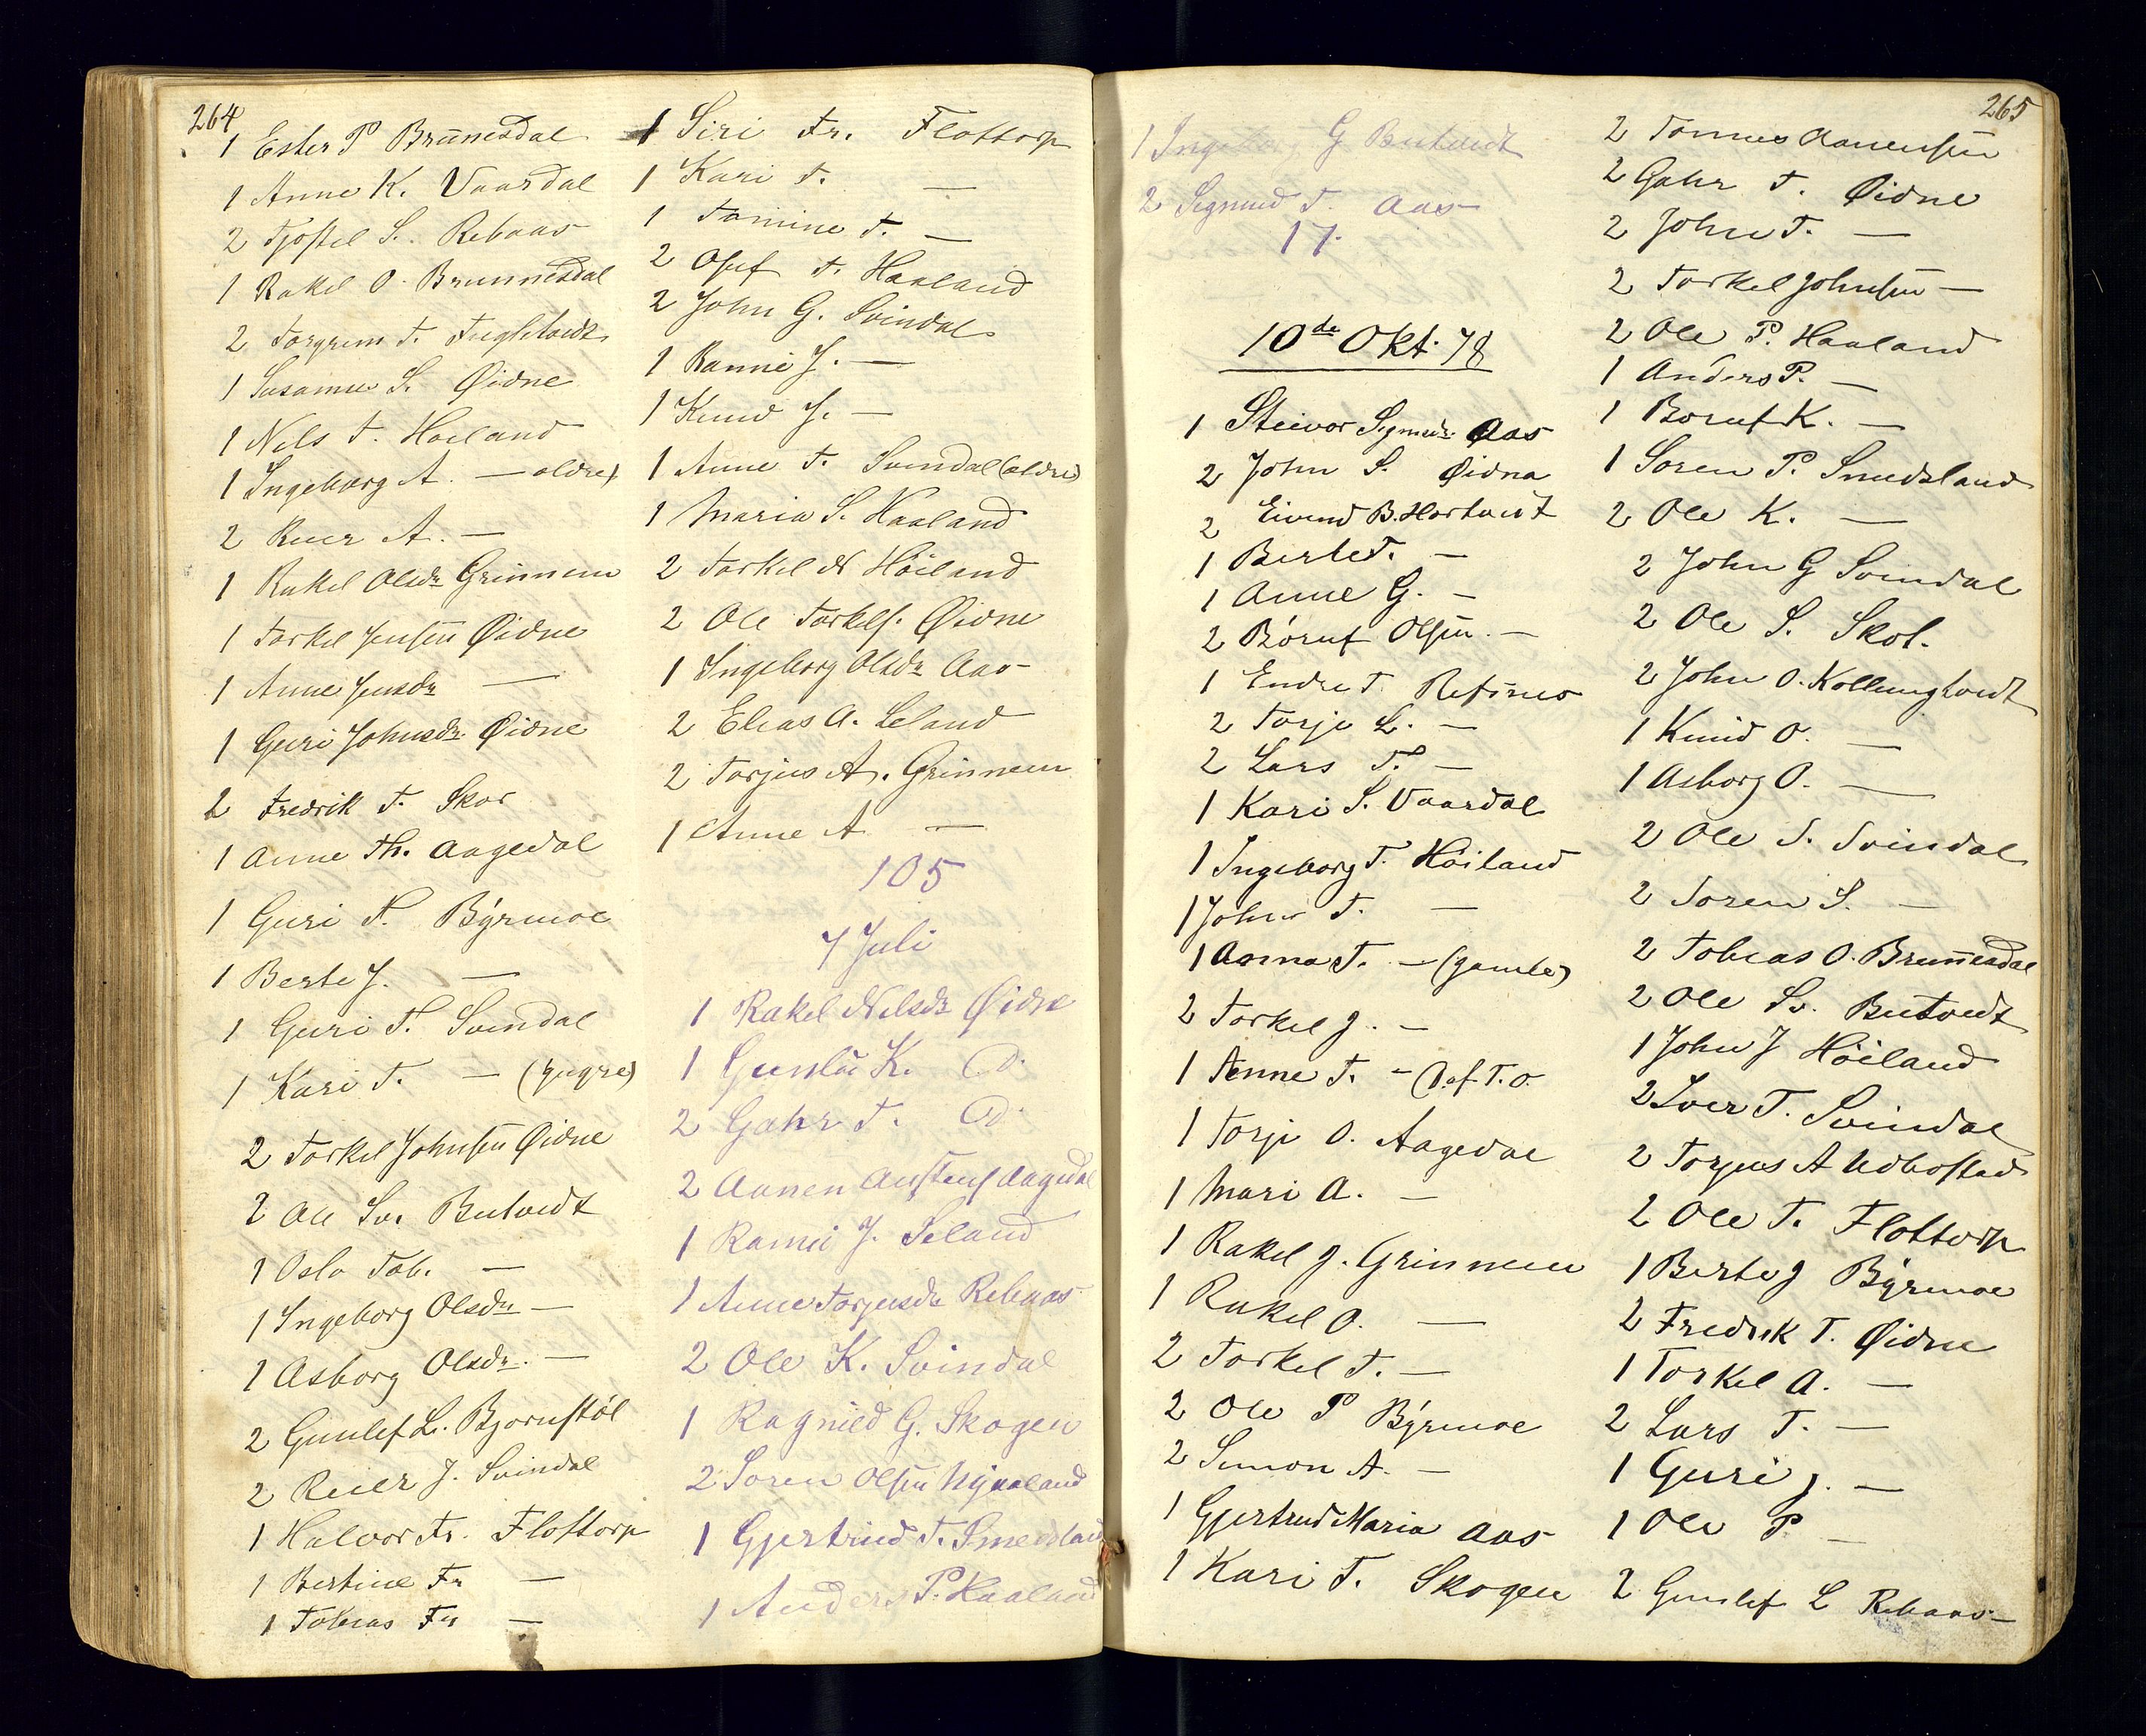 264
1 Ester P Brunnesdal
1 Anne K. Vaardal
2 Tjøstel S. Rebaas
1 Rakel O. Brunnesdal
2 Torgrim T. Fuglstvedt
1 Susanne S. Øidne
1 Nils T. Høiland
1 Ingeborg A. — ældre)
2 Reier A. —
1 Rakel Olsdr Grinnem
1 Torkel Jensen Øidne
1 Anne Jensdr —
1 Guri Johnsdr Øidne
2 Fredrik T. Skor
1 Anne Th. Aagedal
1 Guri N. Byrmoe
1 Berte J. —
1 Guri T. Svindal
1 Kari T. — (yngre)
2 Torkel Johnsen Øidne
2 Ole Sv. Butvedt
1 Oslo Tob. —
1 Ingeborg Olsdr —
1 Asborg Olsdr. —
2 Gunlef L. Bjørnstøl
2 Reier J. Svindal
1 Halvor Fr. Flottorp
1 Bertine Fr —
1 Tobias Fr —
1 Siri Fr. Flottorp
1 Kari T. —
1 Tomine T. —
2 Oluf T. Haaland
2 John G. Svindal
1 Ranni J. —
1 Knud J. —
1 Anne T. Svindal (ældre)
1 Maria S. Haaland
2 Torkel N Høiland
2 Ole Torkels. Øidne
1 Ingeborg Olsdr Aas
2 Elias A. Leland
2 Torjus A. Grinnem
1 Anne A —
105
7 Juli
1 Rakel Nilsdr Øidne
1 Gunlau K. Do.
2 Gahr T. Do.
2 Aanen Austens Aagedal
1 Ranni J. Seland
1 Anne Torjusdr Rebaas
2 Ole K. Svindal
1 Ragnild G. Skogen
2 Soren Olsen Nyaaland
1 Gjertrud T. Smedsland
1 Anders P. Haaland
265
1 Ingeborg G Butvedt
2 Sigmund T. Aas
17.
10de Okt. 78
1 Steivor Sigmdr Aas
2 John S. Øidna
2 Eivind B. Hortvedt
1 Berte T. —
1 Anne G. —
2 Børuf Olsen. —
1 Endre T. Refsnes
2 Torje L. —
2 Lars T. —
1 Kari S. Vaardal
1 Ingeborg T. Høiland
1 John T. —
1 Aanna T. — (gamle)
2 Torkel J. —
1 Anne T. — D. af T. O.
1 Torje O. Aagedal
1 Mari A. —
1 Rakel J. Grinnem
1 Rakel O. —
2 Torkel T. —
2 Ole P Byrmoe
2 Simon A. —
1 Gjertrud Maria Aas
1 Kari T. Skogen
2 Tønnes Aanensen
2 Gahr T. Øidne
2 John T. —
2 Torkel Johnsen —
2 Ole P. Haaland
1 Anders P. —
1 Boruf K. —
1 Soren P. Smedsland
2 Ole K. —
2 John G Svindal
2 Ole S. Skol.
2 John O. Kollungtvedt
1 Knud O. —
1 Asborg O. —
2 Ole S. Svindal
2 Soren S. —
2 Tobias O. Brunnesdal
2 Ole Sv. Butvedt
1 John J Høiland
2 Iver T. Svindal
2 Torjus A Udbostad
2 Ole T. Flottorp
1 Berte J Byrmoe
2 Fredrik T. Øidne
1 Torkel A. —
2 Lars T. —
1 Guri J. —
1 Ole P. —
2 Gunlef L Rebaas